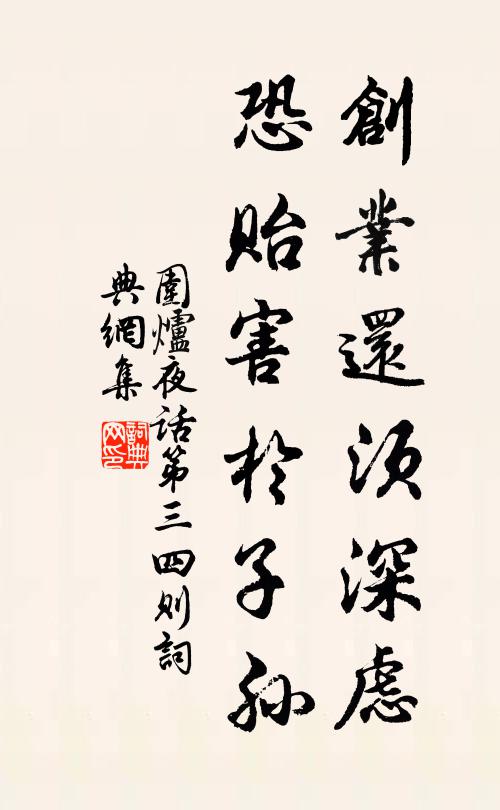 創業還須深慮
恐貽害於子孫
圍爐夜话第三四則詞
典網集
詞典网印